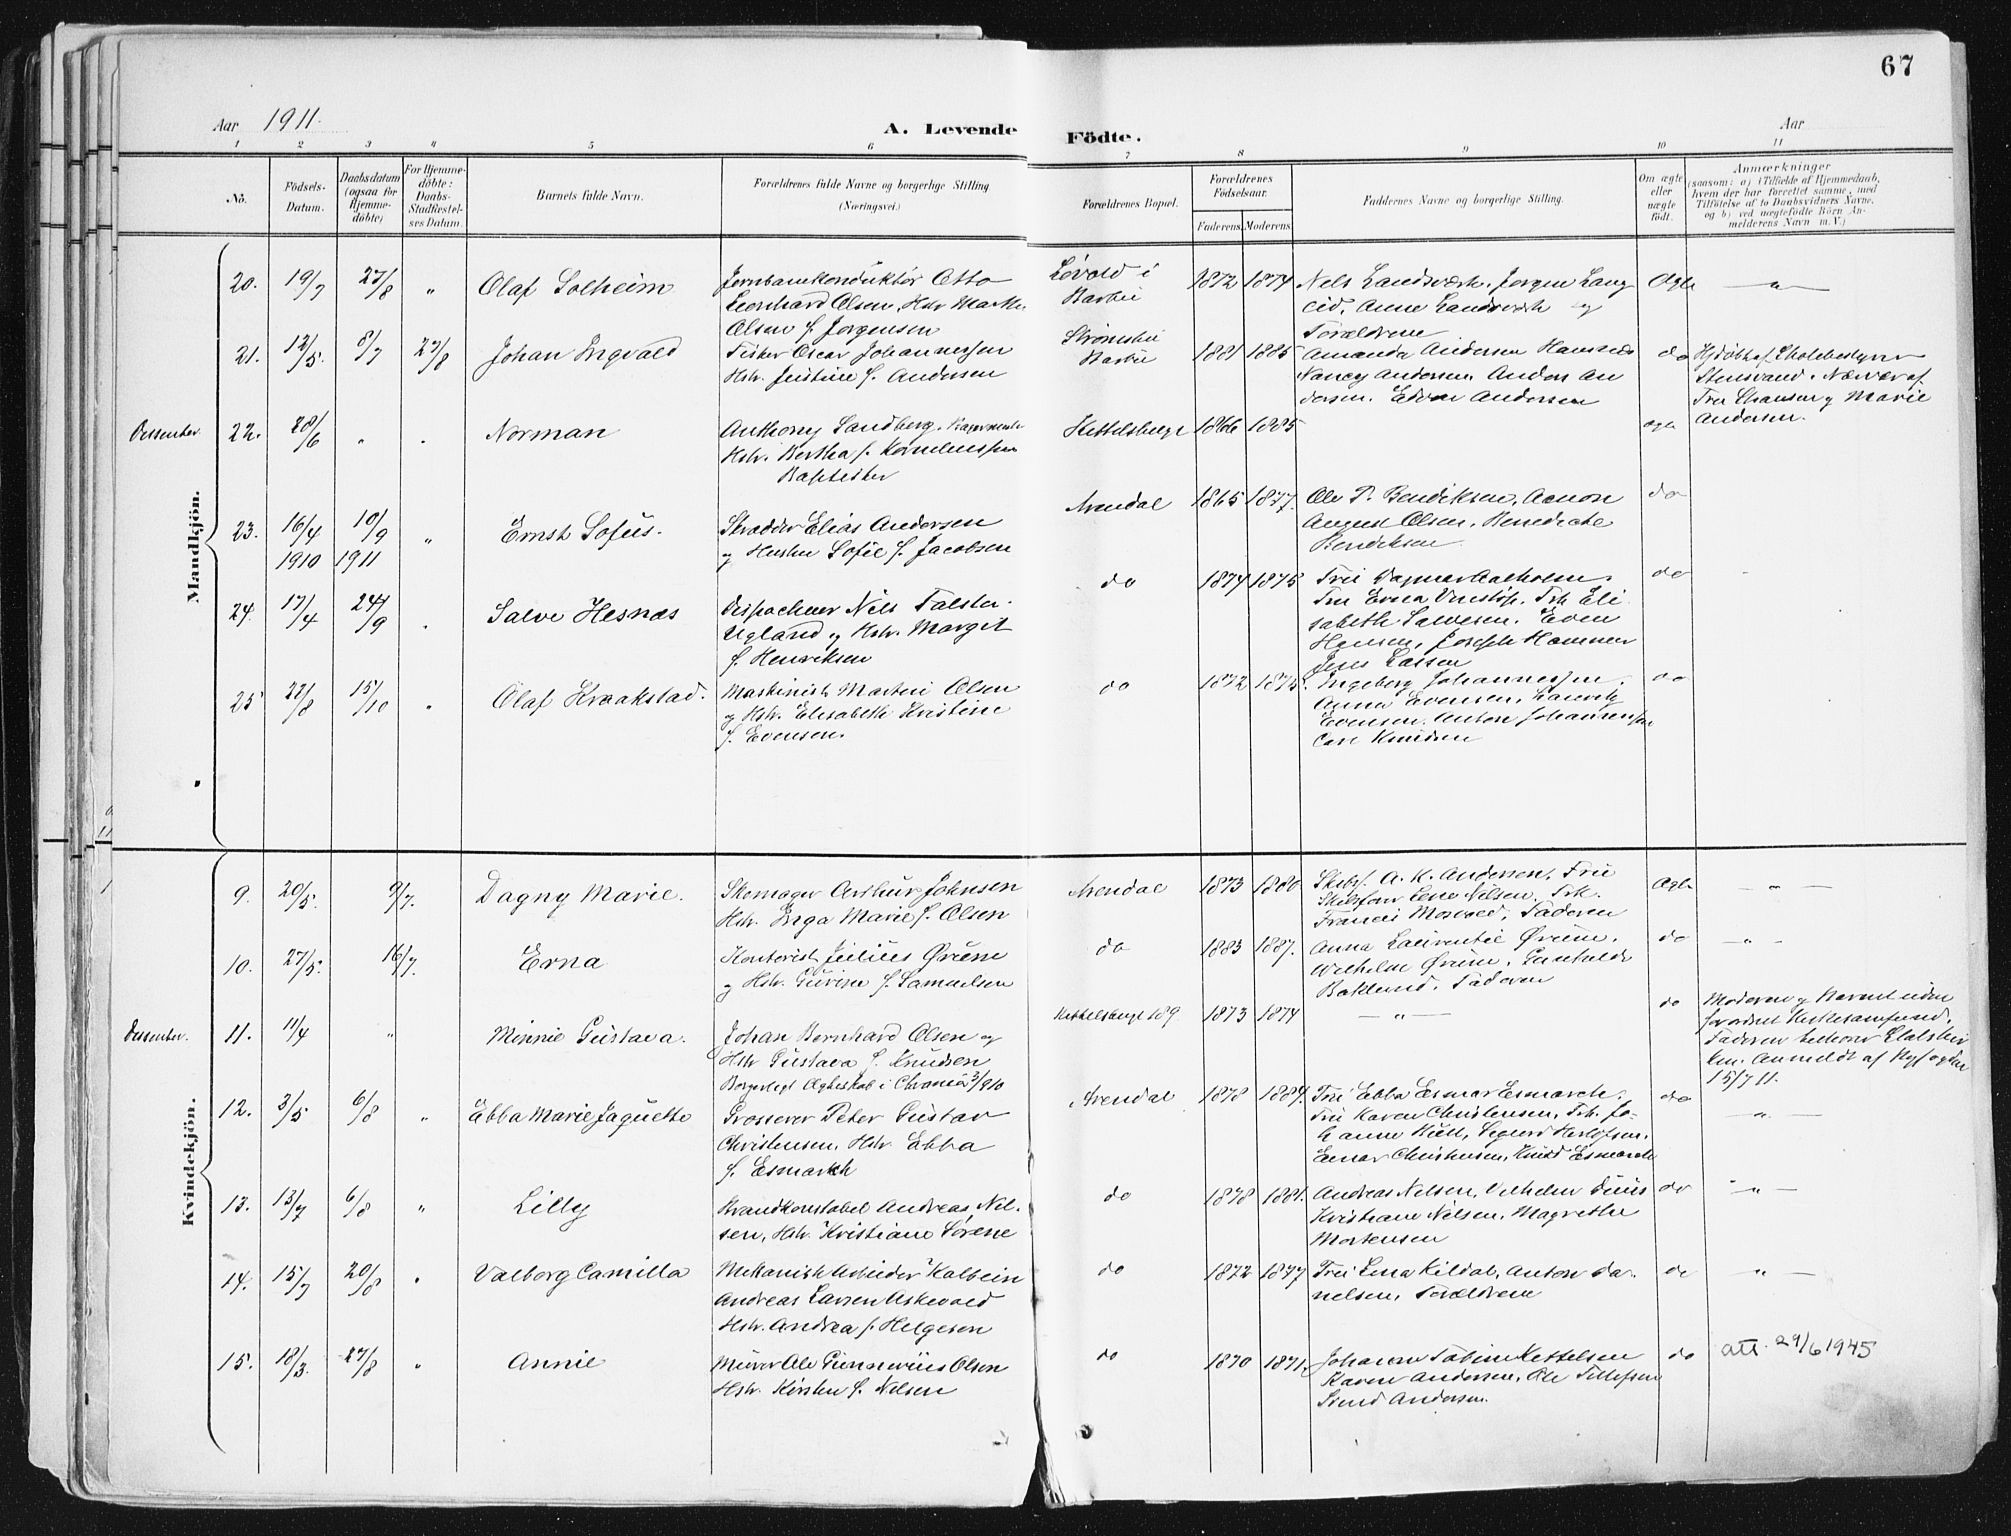 67
Aar 1911.
A. Levende Födte.
Aar
1 2 3 4 5 6 7 8 9 10 11
No.
Födsels-Datum.
Daabsdatum (ogsaa for Hjemme-döbte)
For Hjemme-döbte: Daabs-Stadfæstel-ses Datum.
Barnets fulde Navn.
Forældrenes fulde Navne og borgerlige Stilling (Næringsvei.)
Forældrenes Bopæl.
Forældrenes Födselsaar.
Faderens. Moderens.
Faddernes Navne og borgerlige Stilling.
Om ægte eller uægte födt.
Anmærkninger
(saasom: a) i Tilfælde af Hjemmedaab, hvem der har forrettet samme, med Tilföielse af to Daabsvidners Navne, og b) ved uægtefödte Börn An-melderens Navn m. V.)
Mandkjön.
20. 19/7 27/8 " Olaf Solheim
Jernbanekonduktør Otto
Leonhard Olsen, Hstr
Olsen f. Jørgensen
Løvold i
Barbu
1872 1874
Ægte
21. 12/5. 8/7 27/8 Johan Ingvald
Fisker Oscar Johannessen
Hstr. Justine f. Andersen
Strømsbu
Barbu
1881 1885
Amanda Andersen
Nancy Andersen, Anders An
dersen. Andersen
do
Stensvand.
Fru og Marie
Andersen.
Dissenter. 22. 28/6 " " Norman
Anthony Sandberg.
Hstr. Bertha f. Kornelius
Baptister
Kittelsbugt 1866 1885
ægte
23. 16/4 1910 10/9 1911 " Ernst Sofus.
Skræder Elias Andersen
og Hustru Sofie f. Jacobsen
Arendal 1865 1877.
Ole P. Bendiksen,
August Olsen, Benedicte
Bendiksen
do
24. 17/4 24/9 " Salve Hesnæs
Dispacheur Nils Falster
Ugland og Hstr. Margit
f. Henriksen
do 1874 1875
Fru Dagmar Aalholm.
Fru Erna Frk Eli
sabeth Salvesen. Even
Hansen, Joseph Hammer
Jens Larsen
do
25 22/8 15/10 " Olaf Kraakstad.
Maskinist Martin Olsen
og Hstr. Elisabeth Kristine
f. Evensen.
do 1872 1875.
Ingeborg Johannessen.
Anna Evensen,
Evensen. Anton Johannessen
Carl Knudsen
do
Kvindekjön.
9. 20/5. 9/7. Dagny Marie.
Skomager Arthur Johnsen
Hstr. Inga Marie f. Olsen
Arendal 1873 1880.
Skibsf. A. K. Andersen, Fru
Lene Nilsen. Frk.
Faderen
Ægte — " —
10. 27/5. 16/7. Erna
Kontorist Julius Grum
og Hstr. Guvine f. Samuelsen
do 1883 1887.
Anna Laurentie
Wilhelm
Faderen
do — " —
Dissenter. 11. 11/4 " Minnie Gustava.
Johan Bernhard Olsen og
Hstr Gustava f. Knudsen
Borgerligt Ægteskab i Chrania 3/910
Kittelsbugt 189 1873 1874
— " —
do
Moderen og Barnet uden
for ordnet Kirkesamfund.
Faderen tilhører Statskir
ken. Anmeldt af
15/7 11.
12. 3/5 6/8 " Ebba Marie Jaquette
Grosserer Peter Gustav
Christensen, Hstr. Ebba
f. Esmarch
Arendal 1878 1884.
Fru Ebba Esmarch.
Fru Karen Christensen, Frk. Jo-
hanne
Einar Christensen, Knud Esmarch
do — " —
13. 13/7 6/8 " Lilly
Brandkonstabel Andreas Nil-
sen, Hstr. Kristiane Sørene
do 1878 1881.
Andreas Nilsen, Vilhelm
Kristiane Nilsen, Magrethe
Mortensen
do — " —
14. 15/7 20/8 " Valborg Camilla
Mekanisk Arbeider Kalbein
Andreas Larsen Askevold
Hstr. Andrea f. Helgesen
do 1872 1877
Fru Lina Kildal, Anton Da-
nielsen, Forældrene
do — " —
15. 18/3. 27/8 " Annie
Murer Ole Gunnerius Olsen
Hstr. Kirsten f. Nilsen
do 1870 1871.
Johanne Kittelsen
Karen Andersen, Ole Tellefsen
Svend Andersen.
do
att. 29/6 1945